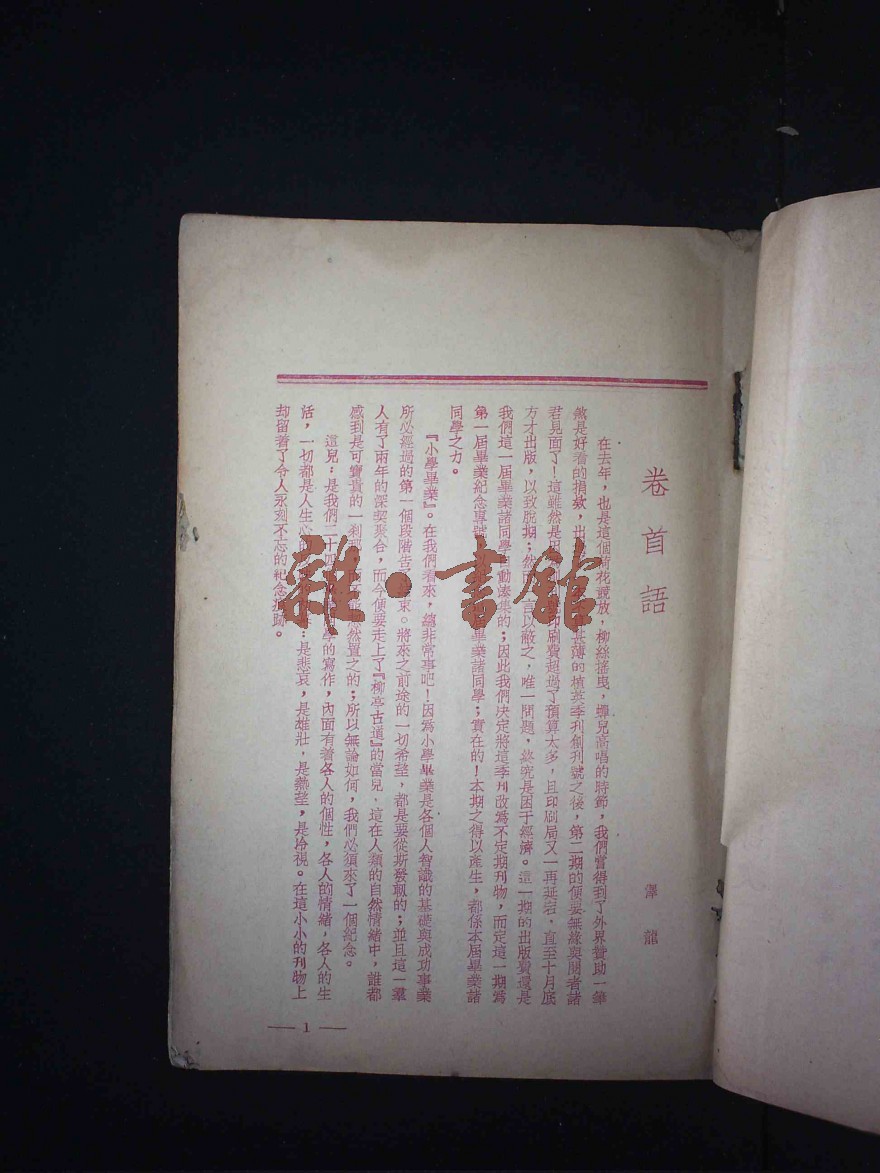 卷首語
澤龍
在去年，也是這個荷花競放，柳絲搖曳，蟬兒高唱的時節，我們嘗得到了外界贊助一筆
煞是好看的捐欵，出甚薄的植英季刊創刊號之後，第二期的便要無緣與閱者諸
君見面了！這雖然是因印刷費超過了預算太多，且印刷局又一再延宕，直至十月底
方才出版，以致脫期；然言以敝之，唯一問題，終究是困于經濟。這一期的出版費還是
我們這一屆畢業諸同學自動湊集的；因此我們决定將這季刊改爲不定期刊物，而定這一期爲
第一屆畢業紀念專號畢業諸同學；實在的！本期之得以產生，都係本屆畢業諸
同學之力。
『小學畢業』。在我們看來，總非常事吧！因爲小學畢業是各個人智識的基礎與成功事業
所必經過的第一個段階告了結束。將來之前途的一切希望，都是要從斯發軔的；並且這一羣
人有了兩年的深契聚合，而今便要走上了『柳亭古道』的當兒，這在人類的自然情緒中，誰都
感到是可寶貴的一刹那，而不能忽然置之的；所以無論如何，我們必須來了一個紀念。
這兒：是我們二十四學的寫作，內面有着各人的個性，各人的情緒，各人的生
活，一切都是人生心的：是悲哀，是雄壯，是熱望，是冷視。在這小小的刊物上
却留着了令人永刻不忘的紀念痕跡。
— 1 —
雜·書館